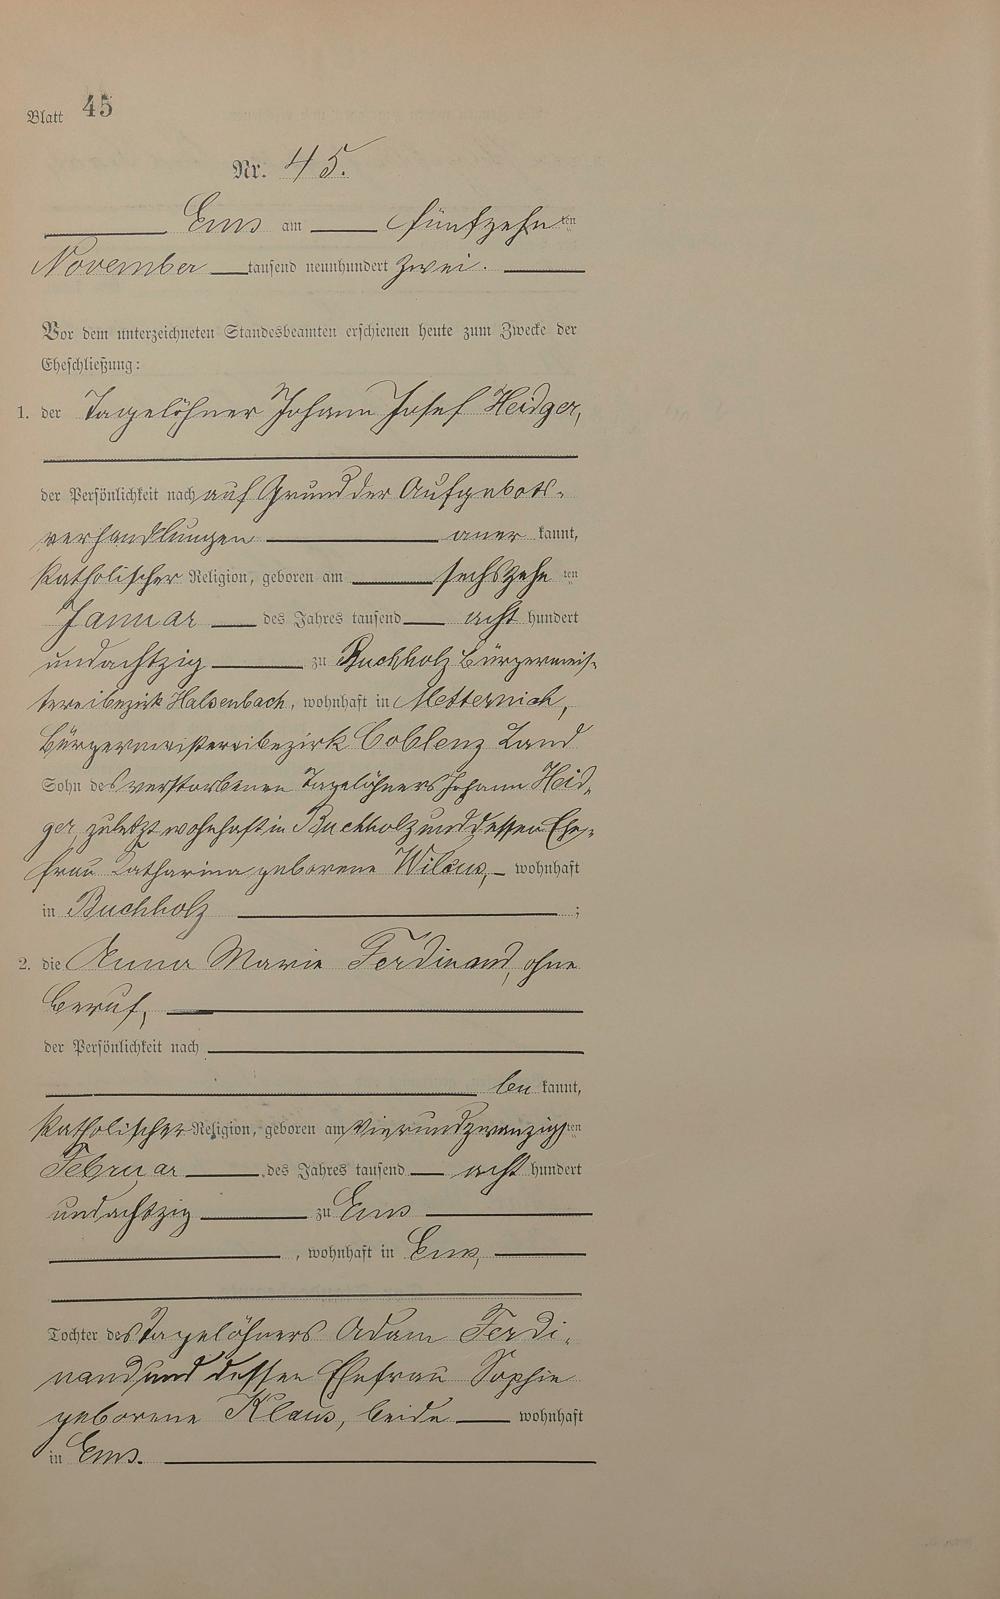 Blatt 45
Nr. 45.
Ems am fünfzehnten
November tausend neunhundert zwei.
Vor dem unterzeichneten Standesbeamten erschienen heute zum Zwecke der
Eheschließung:
1. der Tagelöhner Johann Josef Heidger,
der Persönlichkeit nach auf Grund der Aufgebots-
verhandlungen anerkannt,
katholischer Religion, geboren am sechszehnten
Januar des Jahres tausend acht hundert
undachtzig zu Buchholz Bürgermeis-
tereibezirk Halsenbach, wohnhaft in Metternich,
Bürgermeistereibezirk Coblenz Land
Sohn des verstorbenen Tagelöhners Johann Heid-
ger, zuletzt wohnhaft in Buchholz und dessen Ehe-
frau Catharina geborene wohnhaft
in Buchholz ;
2. die Anna Marie Ferdinand, ohne
Beruf,
der Persönlichkeit nach
bekannt,
katholischer Religion, geboren am vierundzwanzigsten
Februar des Jahres tausend acht hundert
undachtzig zu Ems
, wohnhaft in Ems,
Tochter des Tagelöhners Adam Ferdi-
nand und dessen Ehefrau Sophie
geborene Klaus, beide wohnhaft
in Ems.